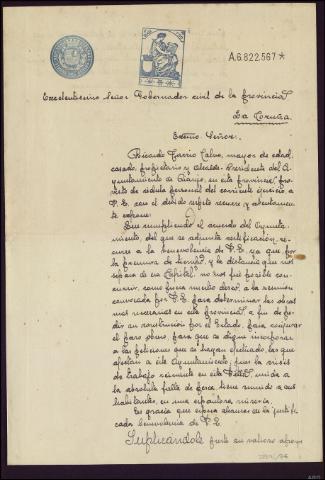 A.6.822.567*
Excelentísimo Señor Gobernador civil de la provincia
La Coruña
Excmo. Señor:
Ricardo Calvo, mayor de edad,
casado, propietario y Alcalde-Presidente del A-
yuntamiento de en esta provincia, pro-
visto de cédula personal del corriente ejercicio a
V.E. con el debido respeto recurre y atentamente
expone:
Que cumpliendo el acuerdo del Ayunta-
miento, del que se adjunta certificación, re-
curre a la benevolencia de V.E. ya que por
la premura de tiempo, y la distancia que nos
separa de esa Capital, no nos fué posible con-
currir, como fuera nuestro deseo, a la reunión
convocada por V.E. para determinar las obras
mas necesarias en esta provincia, a fin de pe-
dir su construcción por el Estado, para conjurar
el paro obrero, para que se digne incorporar
a las peticiones que se hayan efectuado, las que
afectan a este Ayuntamiento, pues la crisis
de trabajo reinante en esta Villa unida a
la absoluta falta de pesca, tiene sumido a sus
habitantes, en una espantosa miseria.
Es gracia que espera alcanzar de la justifi-
cada benevolencia de V.E.
Suplicándole preste su valioso apoyo